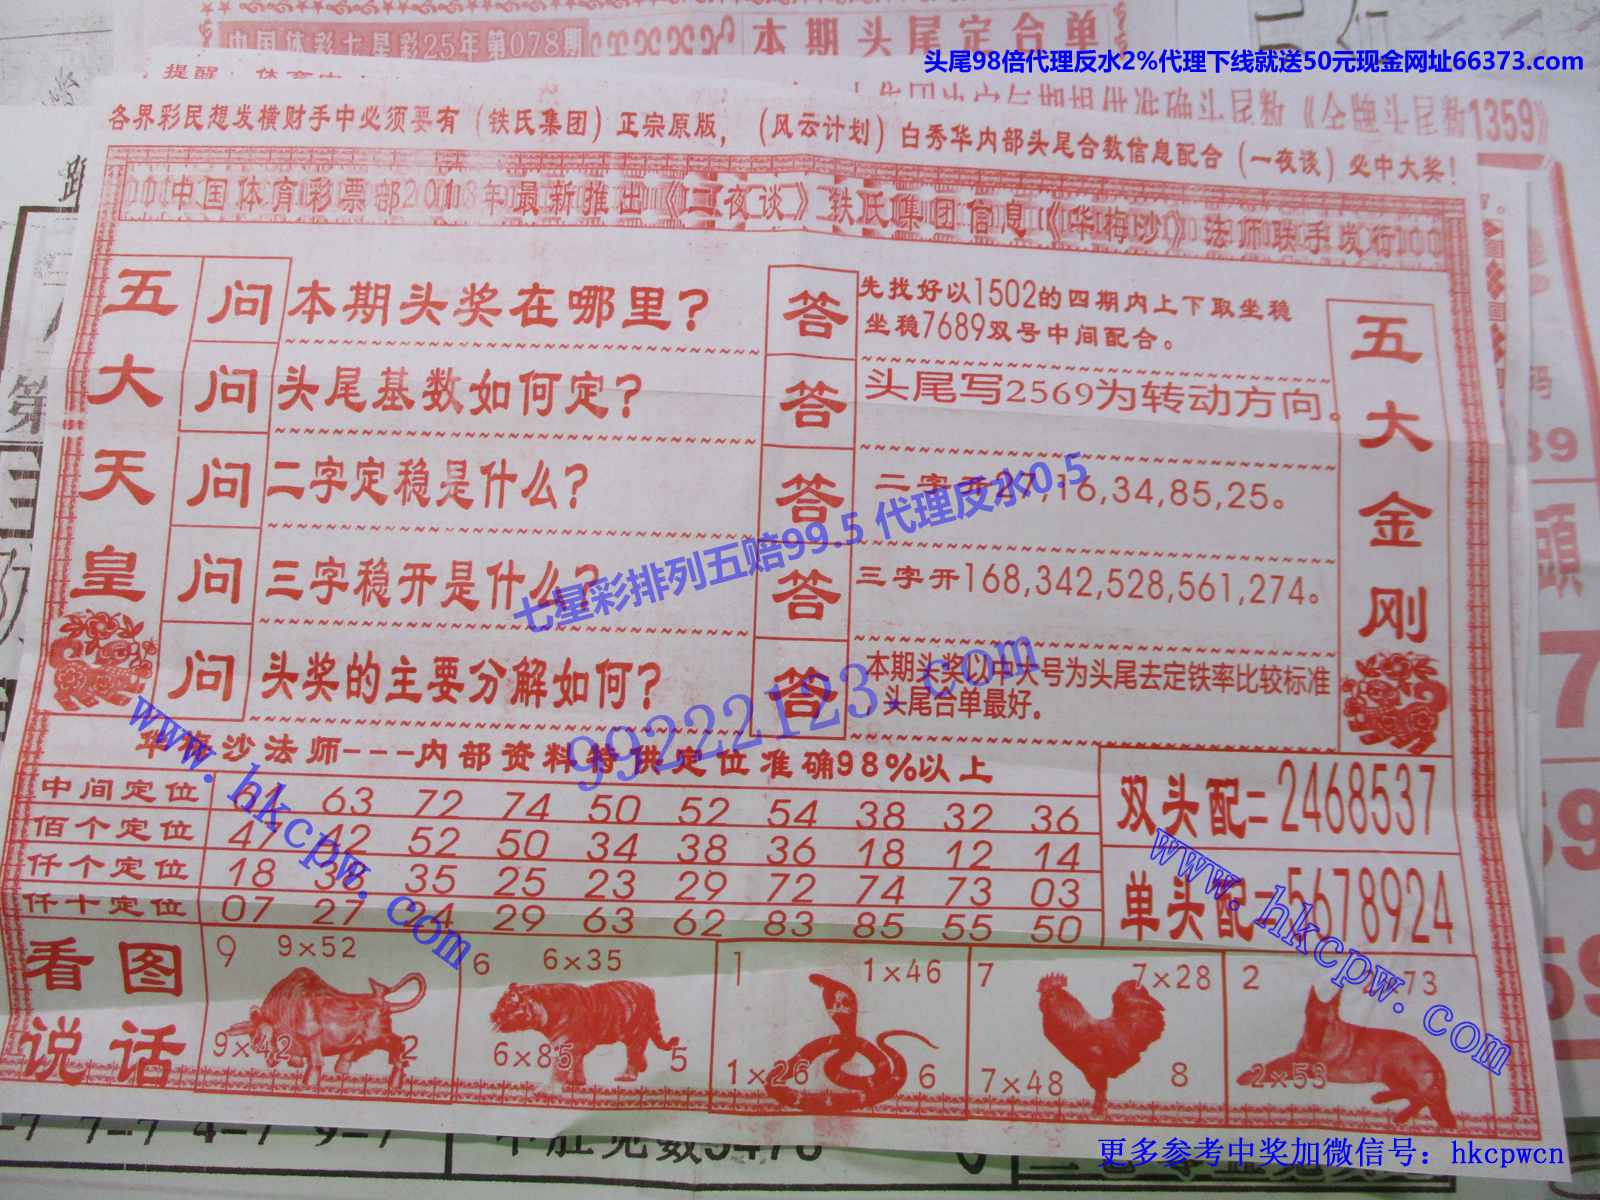 中国体彩七星彩25年第078期
本期头尾定合单
头尾98倍代理反水2%代理下线就送50元现金网址66373.com
提醒
《金牌头尾数1359》
各界彩民想发横财手中必须要有（铁氏集团）正宗原版，（风云计划）白秀华内部头尾合数信息配合（一夜谈）必中大奖！
中国体育彩票部2013年最新推出《二夜谈》铁氏集团信息《华梅沙》法师联手发行
五大天皇
问 本期头奖在哪里？
答 先找好以1502的四期内上下取坐稳
坐稳7689双号中间配合。
问 头尾基数如何定？
答 头尾写2569为转动方向。
问 二字定稳是什么？
答 二字开27,16,34,85,25。
问 三字稳开是什么？
答 三字开168,342,528,561,274。
问 头奖的主要分解如何？
答 本期头奖以中大号为头尾去定铁率比较标准
头尾合单最好.
五大金刚
七星彩排列五赔99.5 代理反水0.5
99222123.com
华梅沙法师---内部资料特供定位准确98%以上
中间定位 61 63 72 74 50 52 54 38 32 36
佰个定位 47 42 52 50 34 38 36 18 12 14
仟个定位 18 38 35 25 23 29 72 74 73 03
仟十定位 07 27 24 29 63 62 83 85 55 50
双头配=2468537
单头配=5678924
www.hkcpw.com
www.hkcpw.com
看图
说话
9 9×52
9×42 2
6 6×35
6×85 5
1 1×46
1×26 6
7 7×28
7×48 8
2 2×73
2×53
更多参考中奖加微信号：hkcpwcn